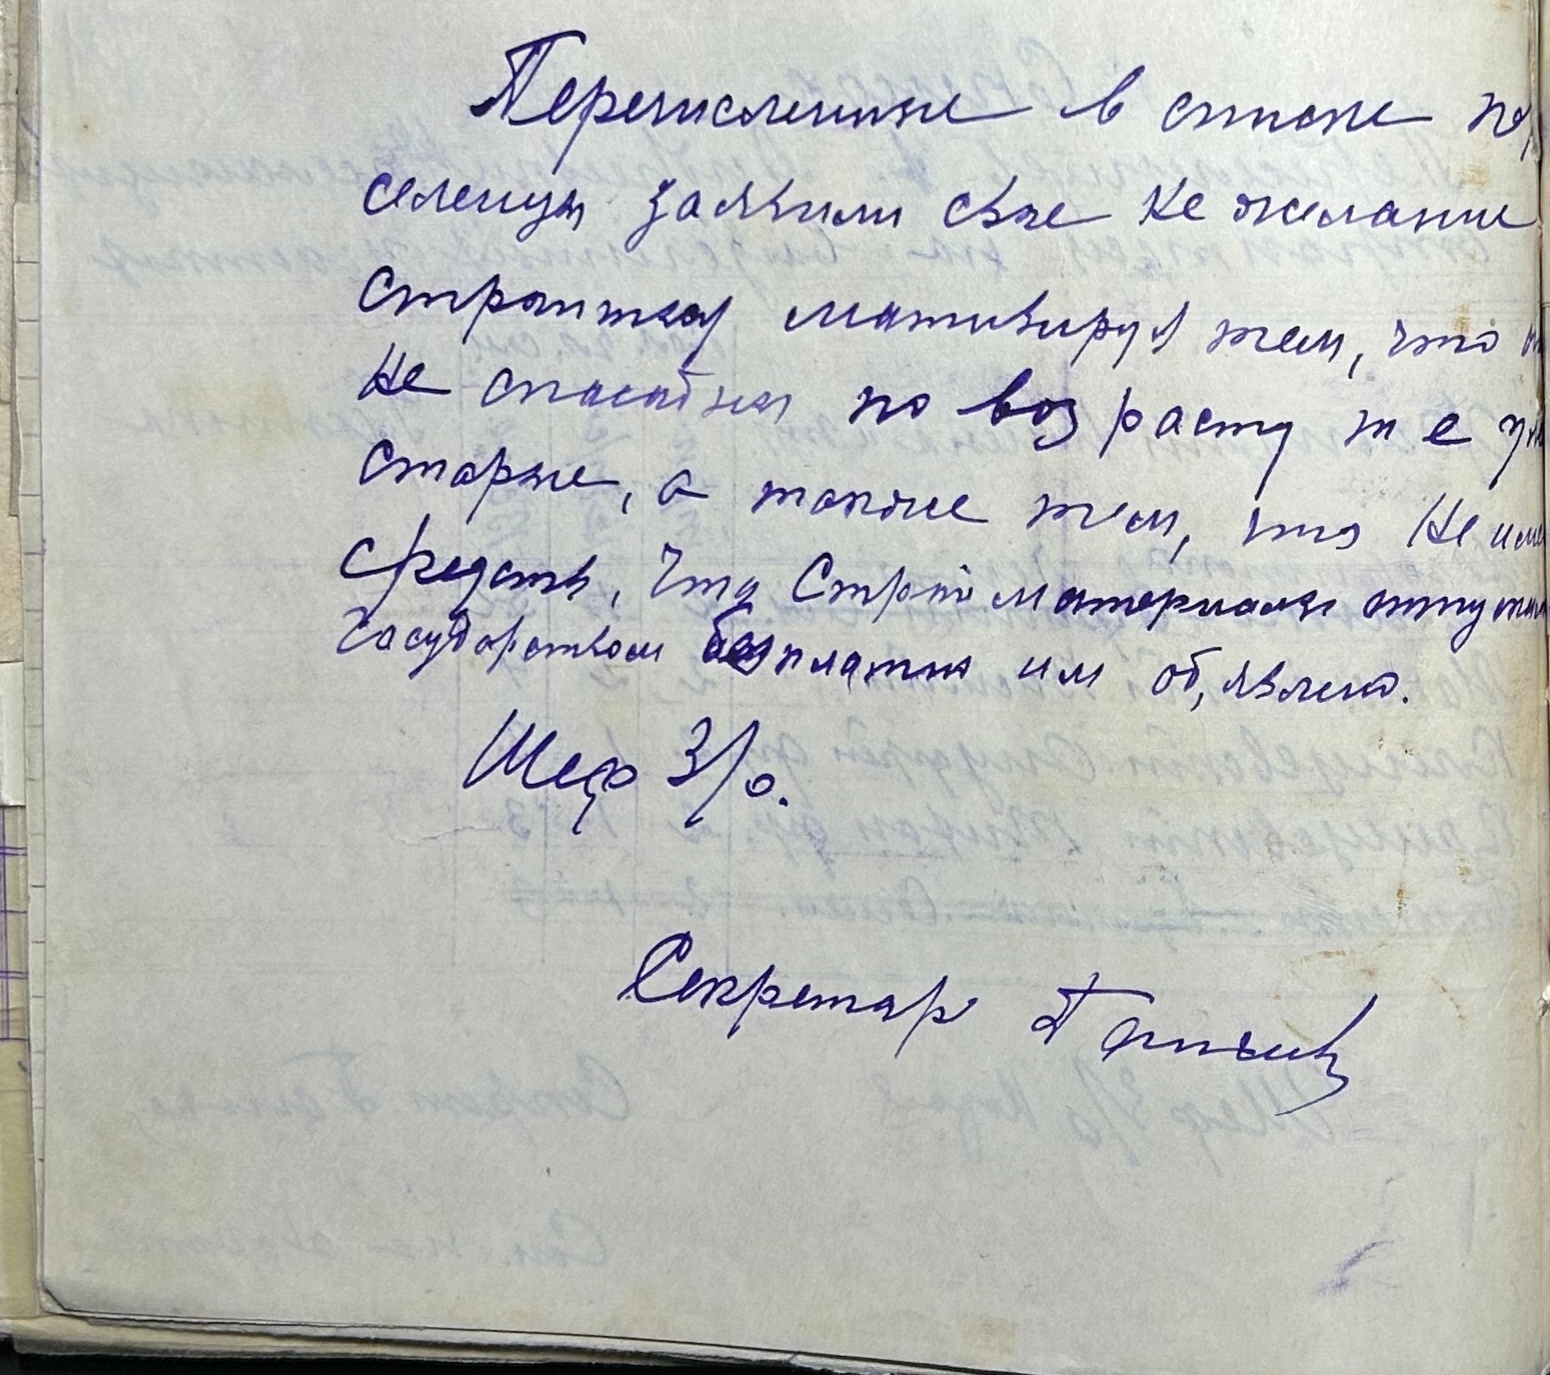 Перечисленные в списке пе
селенцы заявили свое не желание
строитса мативируя тем, что
не спасобны по возрасту т е уже
старые, а также тем, что Не име
средств, Что Строй материалы отпускаю
государством безплатно им об,явлено.
Шеф З/о.
Секретар